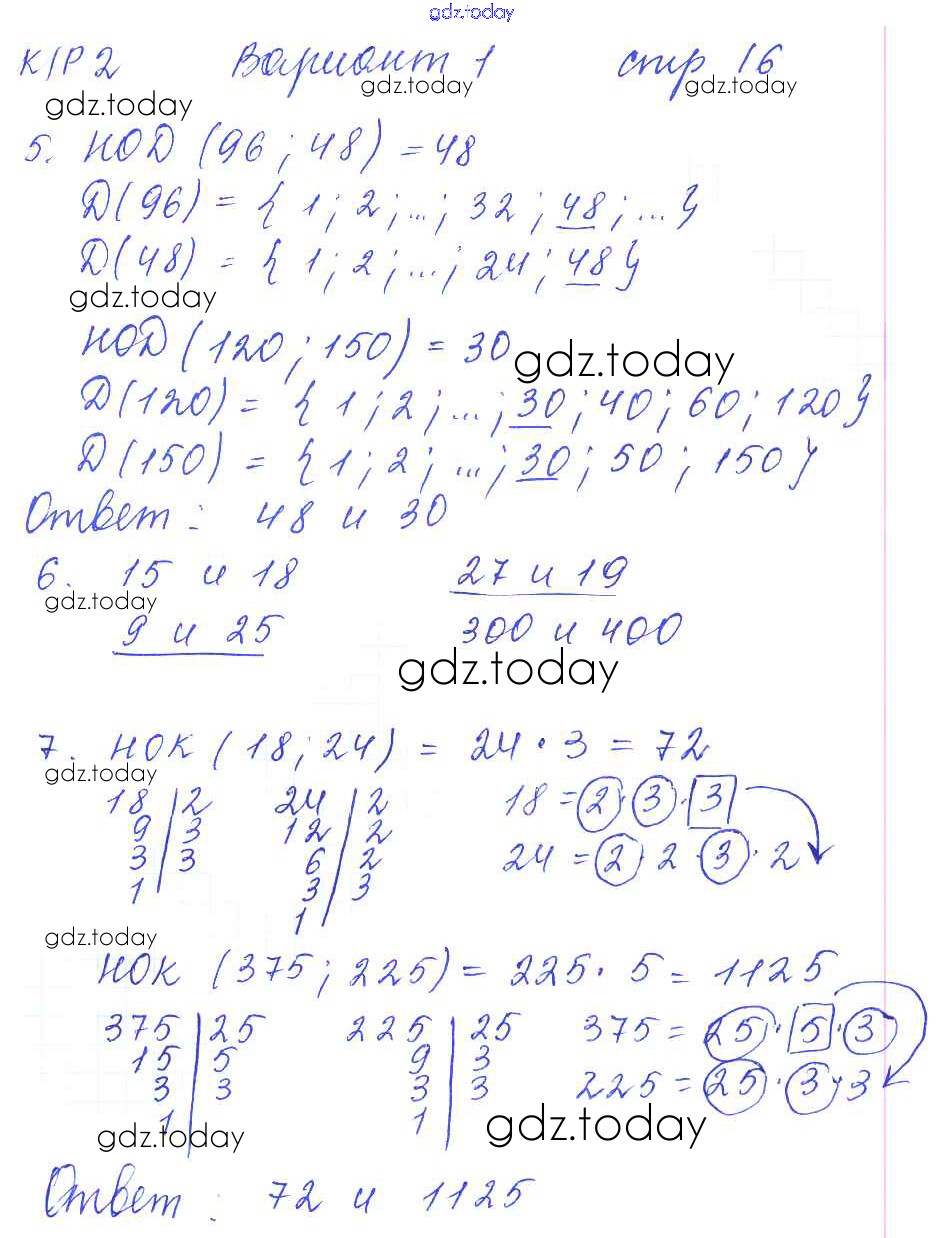 gdz.today
К/Р 2 Вариант 1 стр 16
gdz.today gdz.today gdz.today
5. НОД (96 ; 48) = 48
Д(96) = { 1 ; 2 ; ... ; 32 ; 48 ; ... }
Д(48) = { 1 ; 2 ; ... ; 24 ; 48 }
gdz.today
НОД (120 ; 150) = 30
gdz.today
Д(120) = { 1 ; 2 ; ... ; 30 ; 40 ; 60 ; 120 }
Д(150) = { 1 ; 2 ; ... ; 30 ; 50 ; 150 }
Ответ : 48 и 30
6. 15 и 18 27 и 19
gdz.today
9 и 25 300 и 400
gdz.today
7. НОК ( 18 ; 24 ) = 24 · 3 = 72
gdz.today
18 | 2 24 | 2 18 = 2 · 3 · 3
9 | 3 12 | 2
3 | 3 6 | 2 24 = 2 · 2 · 3 · 2
1 3 | 3
1
gdz.today
НОК (375 ; 225) = 225 · 5 = 1125
375 | 25 225 | 25 375 = 25 · 5 · 3
15 | 5 9 | 3
3 | 3 3 | 3 225 = 25 · 3 · 3
1 1
gdz.today gdz.today
Ответ : 72 и 1125